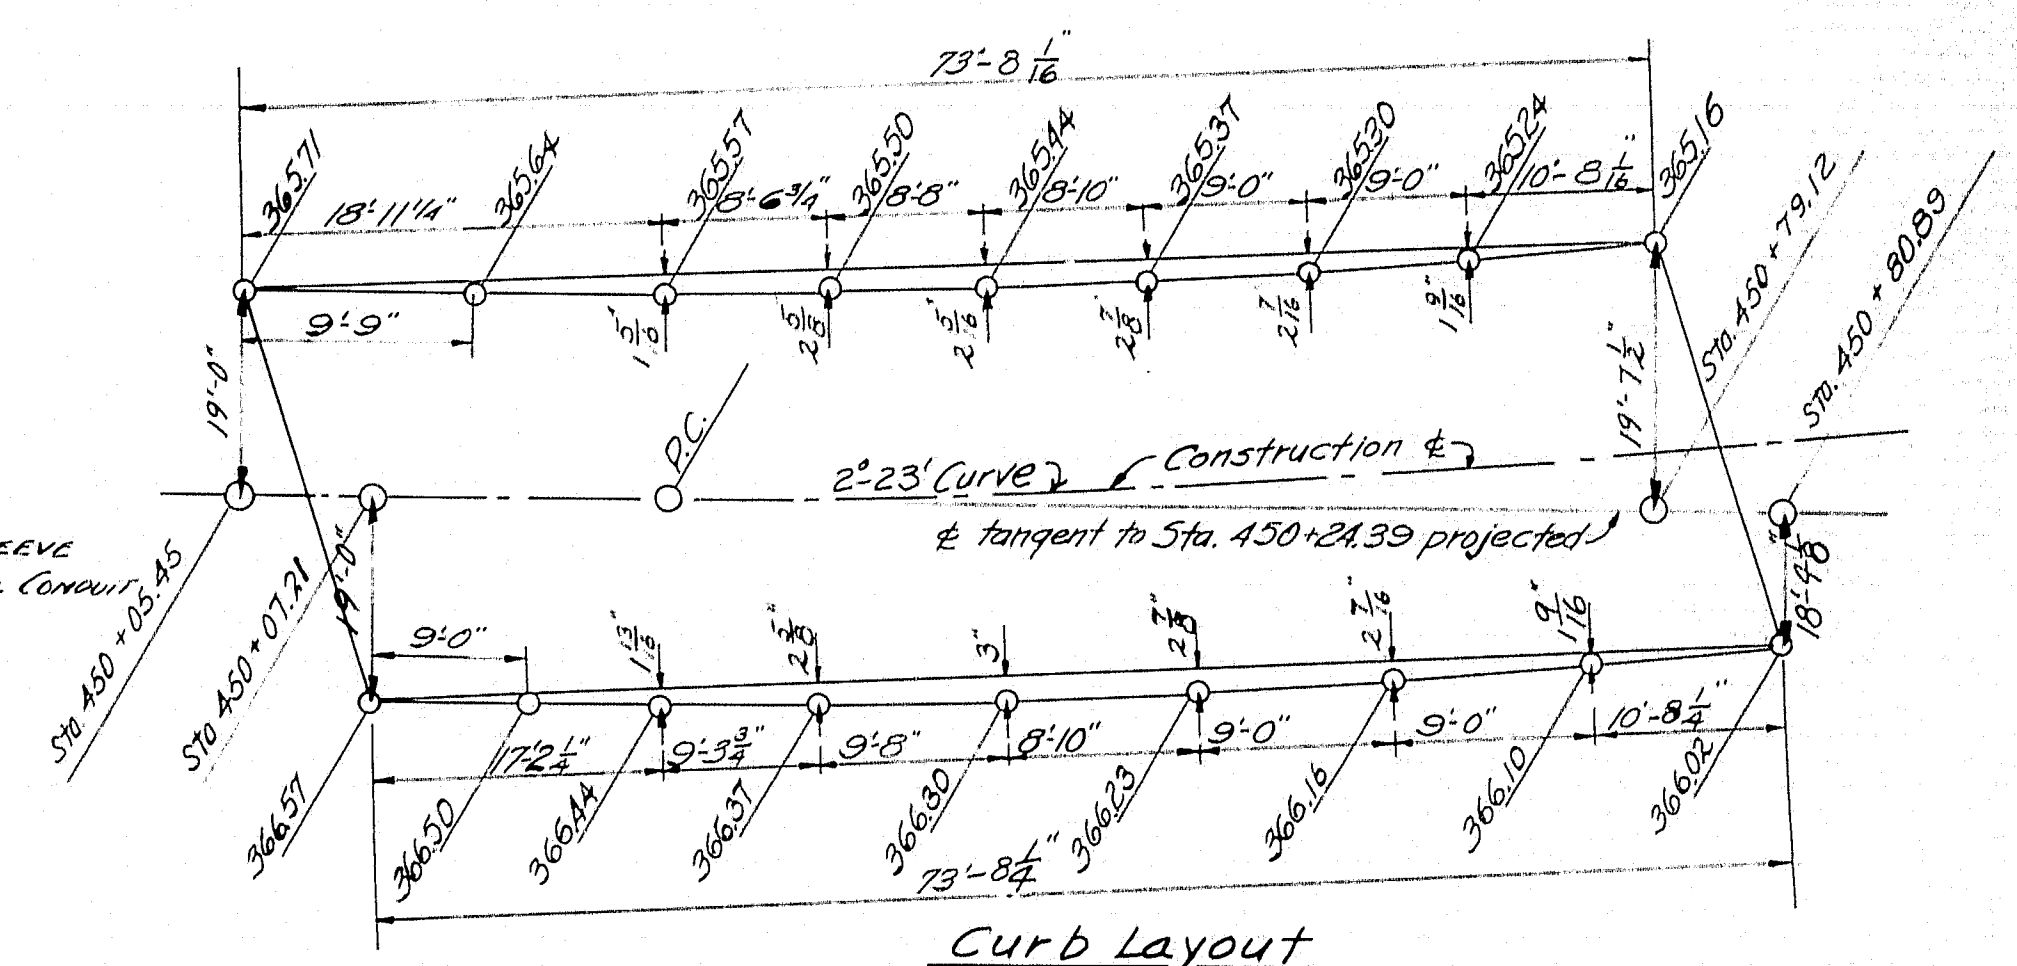 73'-8 1/16"
365.71
365.64
365.57
365.50
365.44
365.37
365.30
365.24
365.16
18'-11 1/4"
8'-6 3/4"
8'-8"
8'-10"
9'-0"
9'-0"
10'-8 1/16"
9'-9"
2 5/8
2 7/8"
2 7/16
1 9/16"
19'-0"
19'-7 1/2"
Sta. 450 + 79.12
Sta. 450 + 80.89
P.C.
2°-23' Curve
Construction ℄
℄ tangent to Sta. 450+24.39 projected
CONDUIT
Sta. 450 + 05.45
Sta 450 + 07.21
19'-0"
18'-4 1/8"
9'-0"
2 5/8"
3"
2 7/8"
2 7/16"
1 9/16"
17'-2 1/4"
9'-3 3/4"
9'-8"
8'-10"
9'-0"
9'-0"
10'-8 1/4"
366.57
366.50
366.44
366.37
366.30
366.23
366.16
366.10
366.02
73'-8 1/4"
Curb Layout